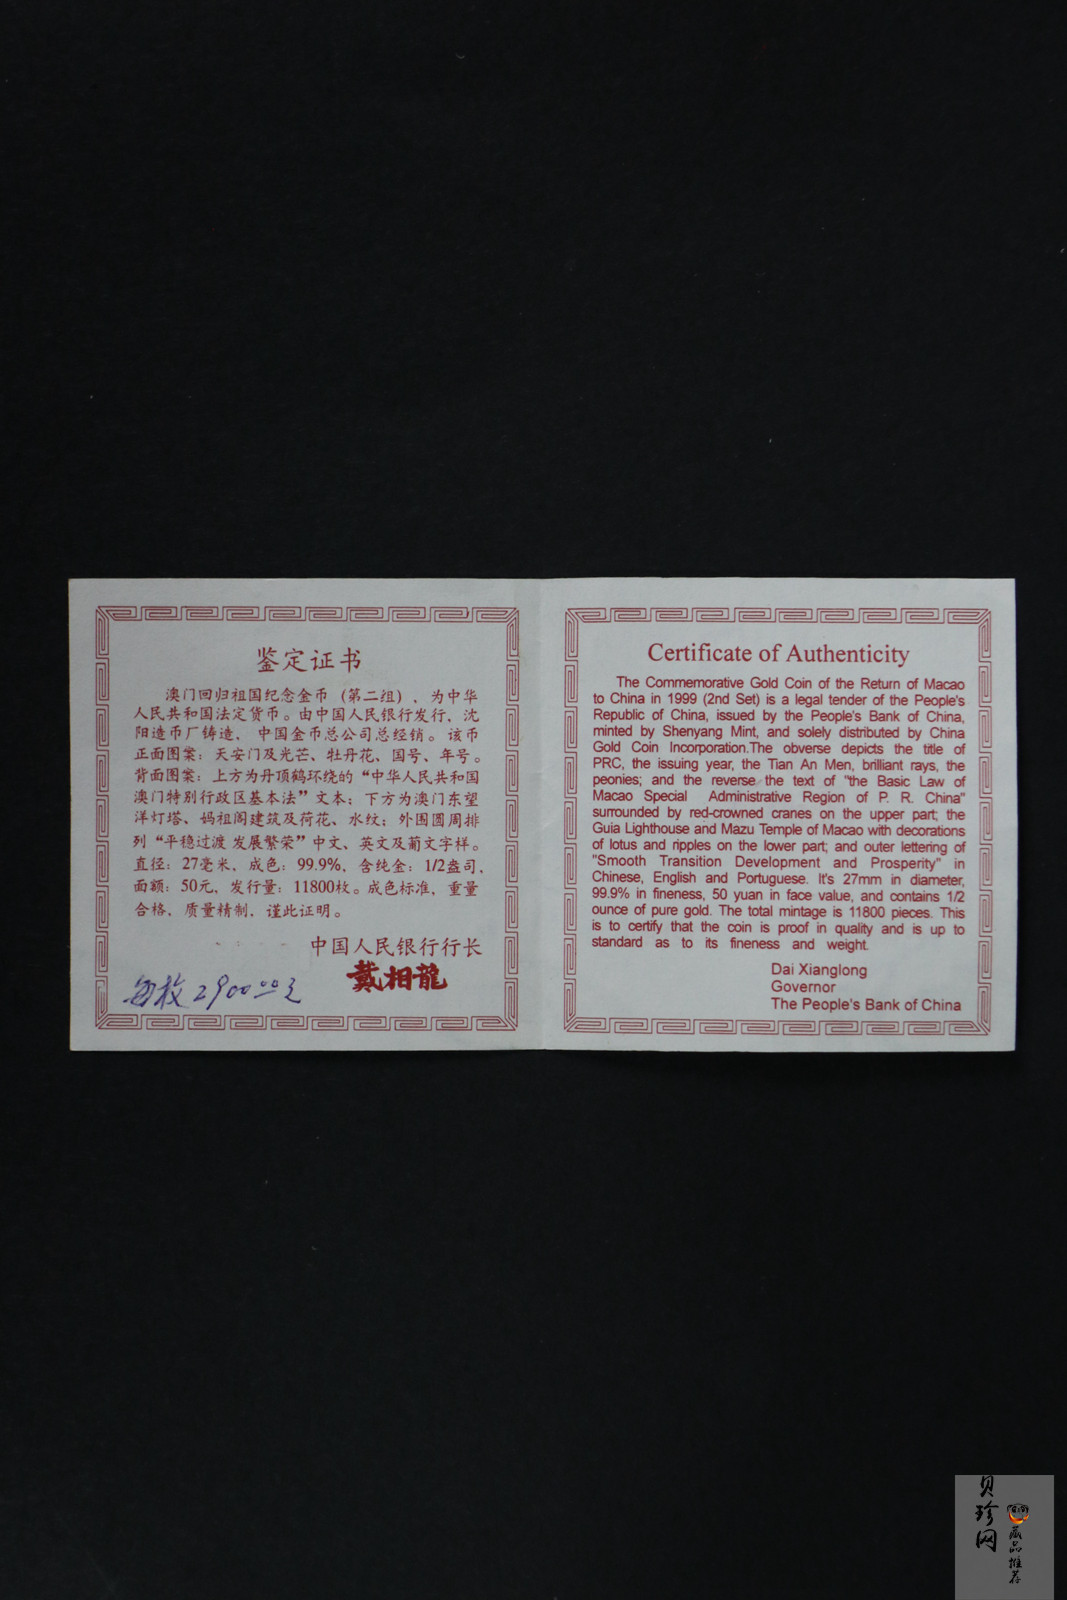 鉴定证书
澳门回归祖国纪念金币（第二组），为中华
人民共和国法定货币。由中国人民银行发行、沈
阳造币厂铸造、中国金币总公司总经销。该币
正面图案：天安门及光芒、牡丹花、国号、年号。
背面图案：上方为丹顶鹤环绕的“中华人民共和国
澳门特别行政区基本法”文本；下方为澳门东望
洋灯塔、妈祖阁建筑及荷花、水纹；外围圆周排
列“平稳过渡 发展繁荣”中文、英文及葡文字样。
直径：27毫米，成色：99.9%，含纯金：1/2盎司，
面额：50元，发行量：11800枚。成色标准，重量
合格，质量精制，谨此证明。
中国人民银行行长
戴相龍
每枚2900.00元
Certificate of Authenticity
The Commemorative Gold Coin of the Return of Macao
to China in 1999 (2nd Set) is a legal tender of the People's
Republic of China, issued by the People's Bank of China,
minted by Shenyang Mint, and solely distributed by China
Gold Coin Incorporation.The obverse depicts the title of
PRC, the issuing year, the Tian An Men, brilliant rays, the
peonies; and the reverse the text of "the Basic Law of
Macao Special Administrative Region of P. R. China"
surrounded by red-crowned cranes on the upper part; the
Guia Lighthouse and Mazu Temple of Macao with decorations
of lotus and ripples on the lower part; and outer lettering of
"Smooth Transition Development and Prosperity" in
Chinese, English and Portuguese. It's 27mm in diameter,
99.9% in fineness, 50 yuan in face value, and contains 1/2
ounce of pure gold. The total mintage is 11800 pieces. This
is to certify that the coin is proof in quality and is up to
standard as to its fineness and weight.
Dai Xianglong
Governor
The People's Bank of China
贝珍网
藏品推荐